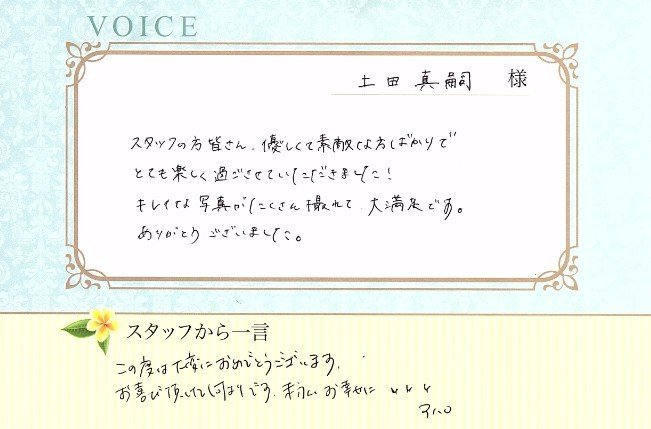 VOICE
土田真嗣 様
スタッフの方皆さん、優しくて素敵な方ばかりで
とても楽しく過ごさせていただきました!
キレイな写真がたくさん撮れて、大満足です。
ありがとうございました。
スタッフから一言
この度は大変におめでとうございます。
お喜び頂けて何よりです。末永くお幸せに